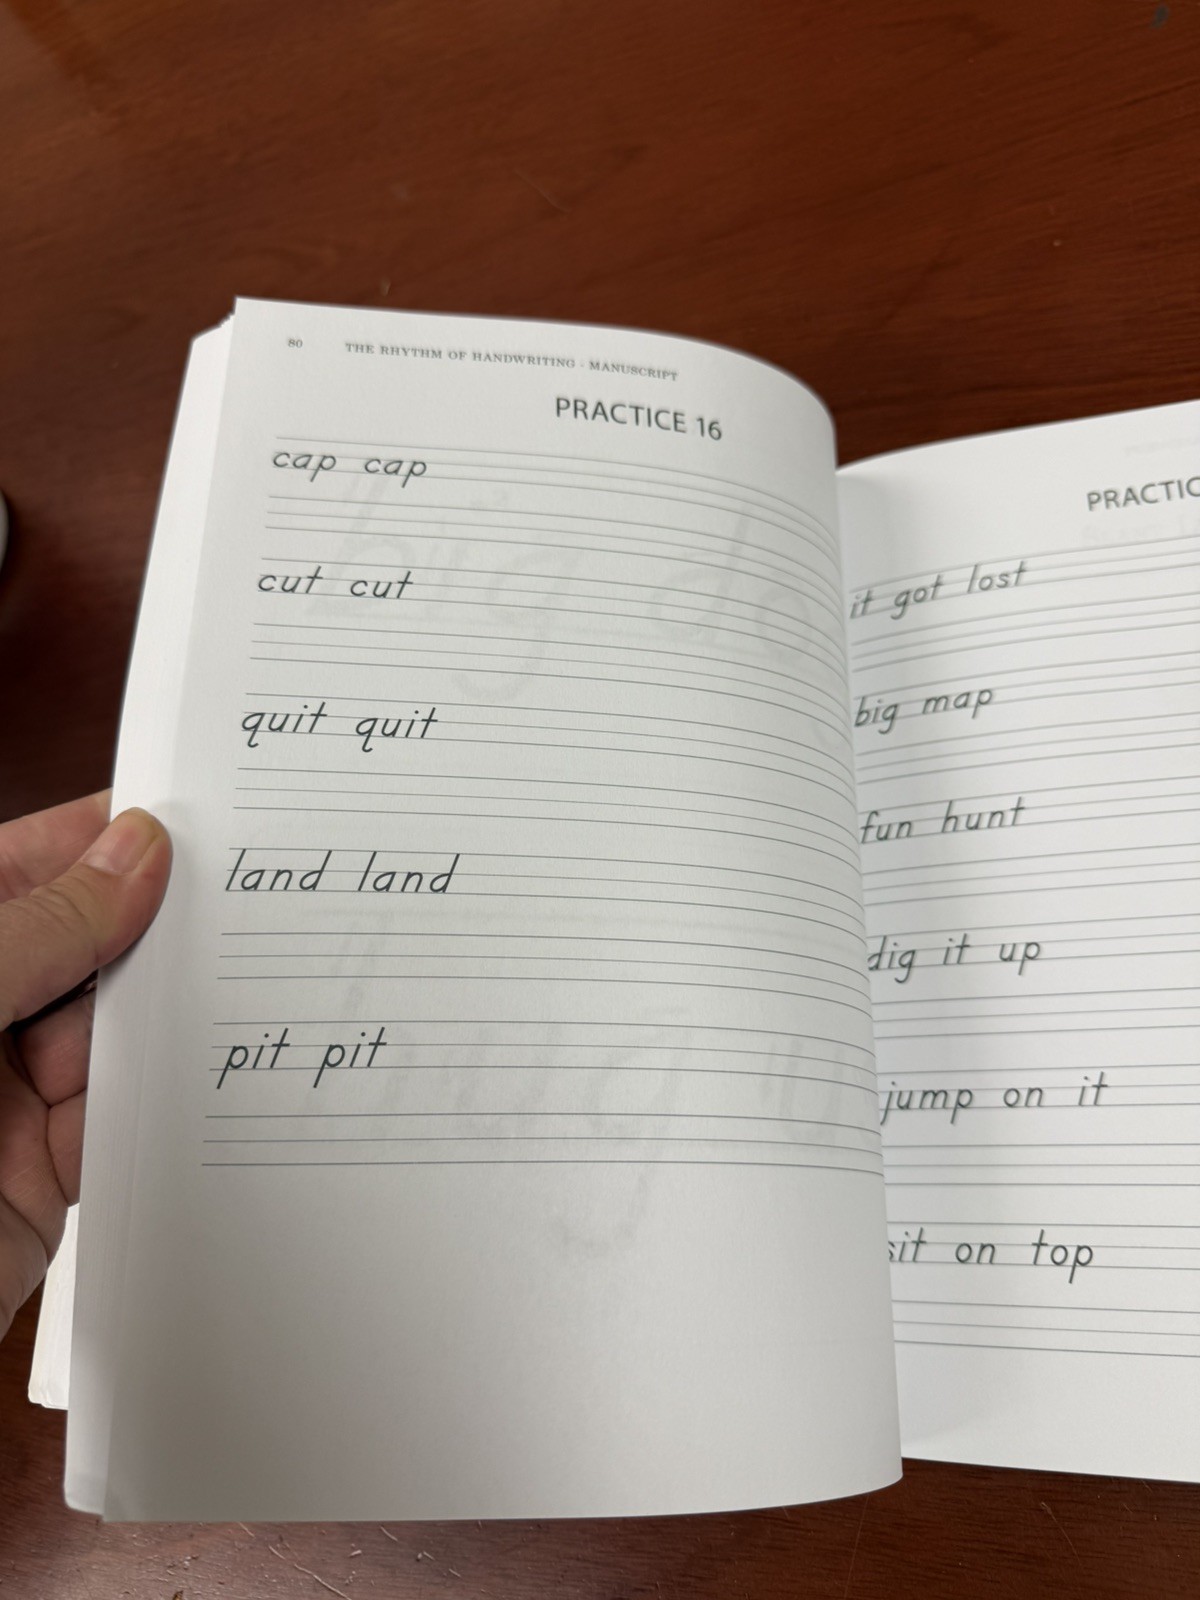 80 THE RHYTHM OF HANDWRITING - MANUSCRIPT
PRACTICE 16
cap cap
cut cut
quit quit
land land
pit pit
it got lost
big map
fun hunt
dig it up
jump on it
sit on top